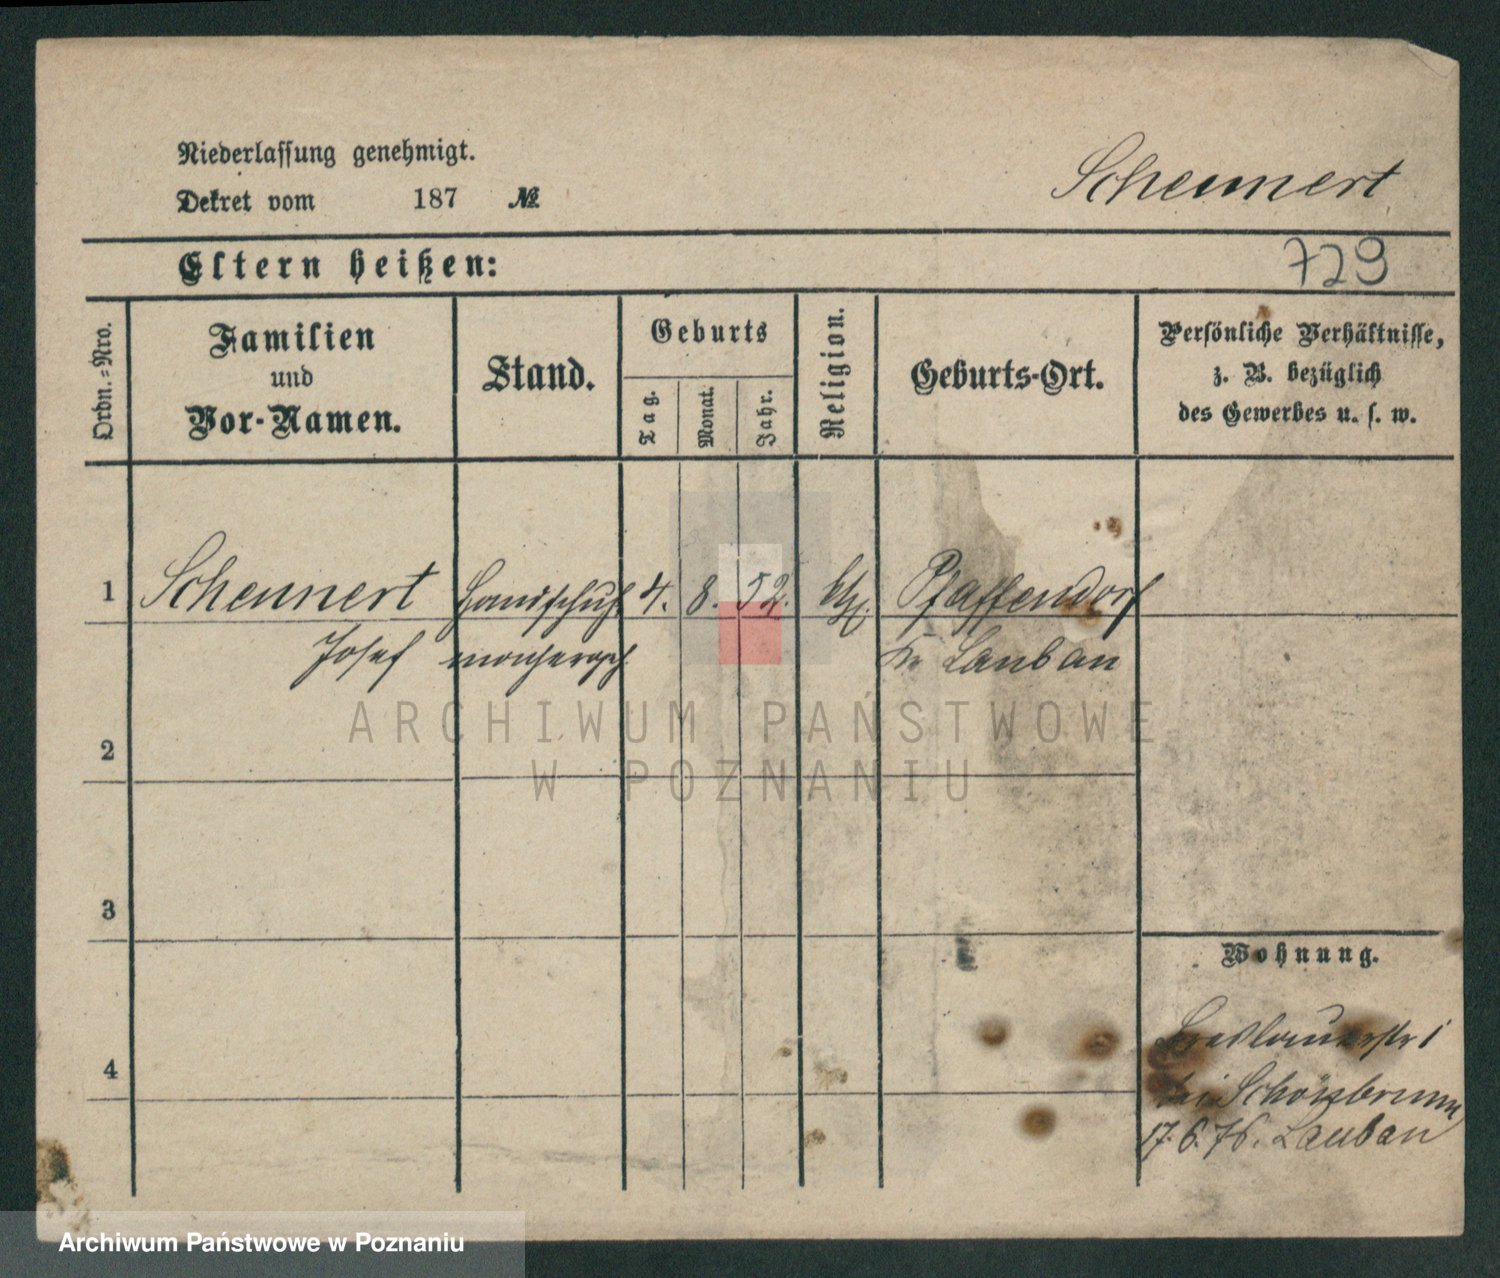 Niederlassung genehmigt.
Dekret vom 187 №
Schennert
Eltern heißen:
729
Ordn.=Nro.
Familien
und
Vor-Namen.
Stand.
Geburts
Tag.
Monat.
Jahr.
Religion.
Geburts-Ort.
Persönliche Verhältnisse,
z. B. bezüglich
des Gewerbes u. s. w.
1 Schennert Handschuh 4. 8. 52. Pfaffendorf
Josef machergsch. Kr Lauban
ARCHIWUM PAŃSTWOWE
W POZNANIU
2
3
Wohnung.
Breslauerstr 1
4
bei Schönbrunn
17.6.76. Lauban
Archiwum Państwowe w Poznaniu